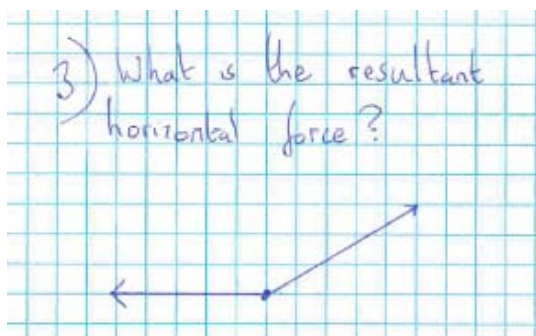 3) What is the resultant
horizontal force?